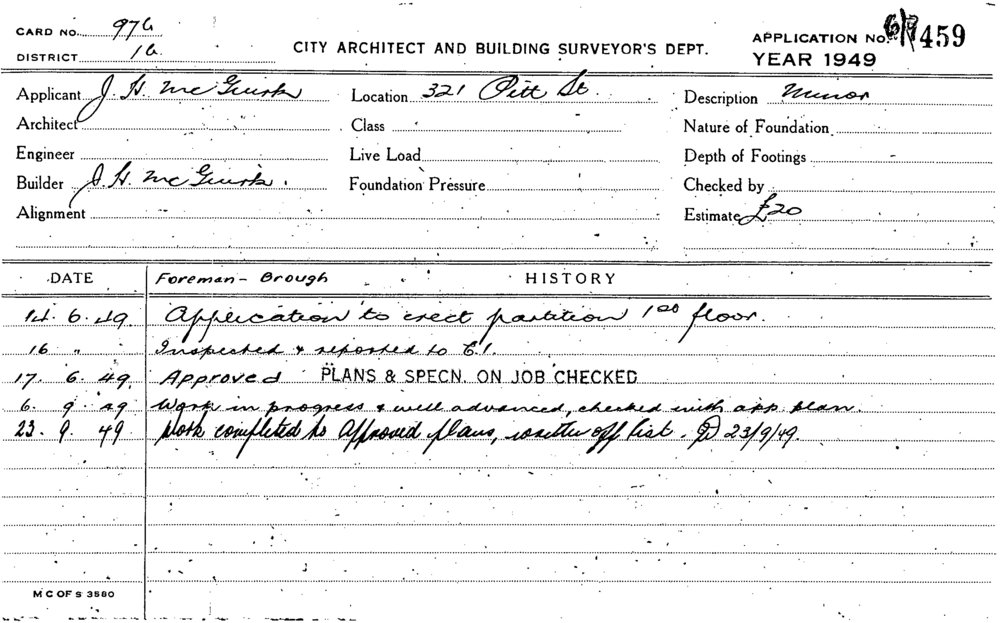 CARD NO. 976
DISTRICT 16
CITY ARCHITECT AND BUILDING SURVEYOR'S DEPT.
APPLICATION No. 459
YEAR 1949
Applicant J. H. McGuirk
Location 321 Pitt St.
Description Minor
Architect
Class
Nature of Foundation
Engineer
Live Load
Depth of Footings
Builder J. H. McGuirk.
Foundation Pressure
Checked by
Alignment
Estimate £20
DATE
Foreman - Brough
HISTORY
14. 6. 49 Application to erect partition 1st floor.
16 " Inspected & reported to C.I.
17. 6. 49 Approved PLANS & SPECN. ON JOB CHECKED
6. 9 49 Work in progress & well advanced, checked with app plan.
23. 9. 49 Work completed to Approved plans, written off list. 23/9/49.
M C OF S 3580